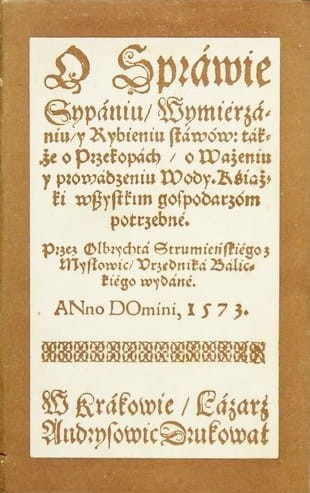 O Spráwie
Sypániu / Wymierzá-
niu / y Rybieniu stáwów: ták-
że o Przekopách / o Ważeniu
y prowádzeniu Wody. Książ-
ki wßystkim gospodarzóm
potrzebné.
Przez Olbrychtá Strumieńskiégo z
Mysłowic / Vrzędniká Balic-
kiégo wydáné.
ANno DOmini, 1573.
W Krákowie / Łázarz
Andrysowic Drukował